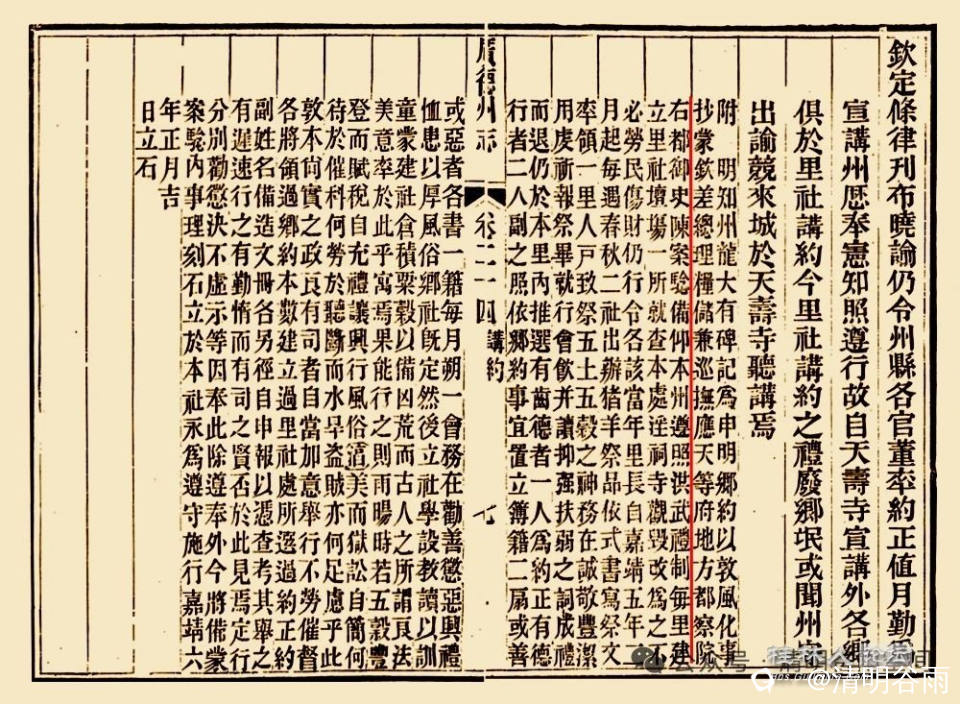 欽定條律刊布曉諭仍令州縣各官董率約正值月勤
宣講州歷奉憲知照遵行故自天壽寺宣講外各鄉
俱於里社講約今里社講約之禮廢鄉氓或聞州
出諭競來城於天壽寺聽講焉
附 明知州龍大有碑記為申明鄉約以敦風化事
抄蒙欽差總理糧儲兼巡撫應天等府地方都察院
右都御史陳案驗備仰本州遵照洪武禮制每里建
立里社壇塲一所就查本處淫祠寺觀毀改為之不
必勞民傷財仍行令各該當年里長自嘉靖五年
月起每遇春秋二社出辦猪羊祭品依式書寫祭文
率領一里人戶致祭五土五穀之神務在誠敬豐潔
用虔祈報祭畢就行會飲并讀抑强扶弱之詞成禮
而退仍於本里內推選有齒德者一人為約正有德
行者二人副之照依鄉約事宜置立簿籍二扇或善
廣德州志 卷二十四 講約 七
或惡者各書一籍每月朔一會務在勸善懲惡興禮
恤患以厚風俗鄉社既定然後立社學設教讀以訓
童蒙建社倉積粟穀以備凶荒而古人之所謂良法
美意率於此乎寓焉果能行之則雨暘時若五穀豐
登而賦稅自充禮讓興行風俗淳美而獄訟自簡何
待於催科何勞於聽斷而水旱盜賊亦何足慮乎此
敦本尚實之政良有司者自當加意舉行不勞催督
各將領過鄉約本數建立過里社處所選過約正約
副姓名備造文冊各另徑自申報以憑查考其舉之
有遲速行之有勤惰而有司之賢否於此見焉定行
分別勸懲決不虛示等因奉此除遵奉外今將備蒙
案驗內事理刻石立於本社永為遵守施行嘉靖六
年正月吉
日立石
@清明谷雨